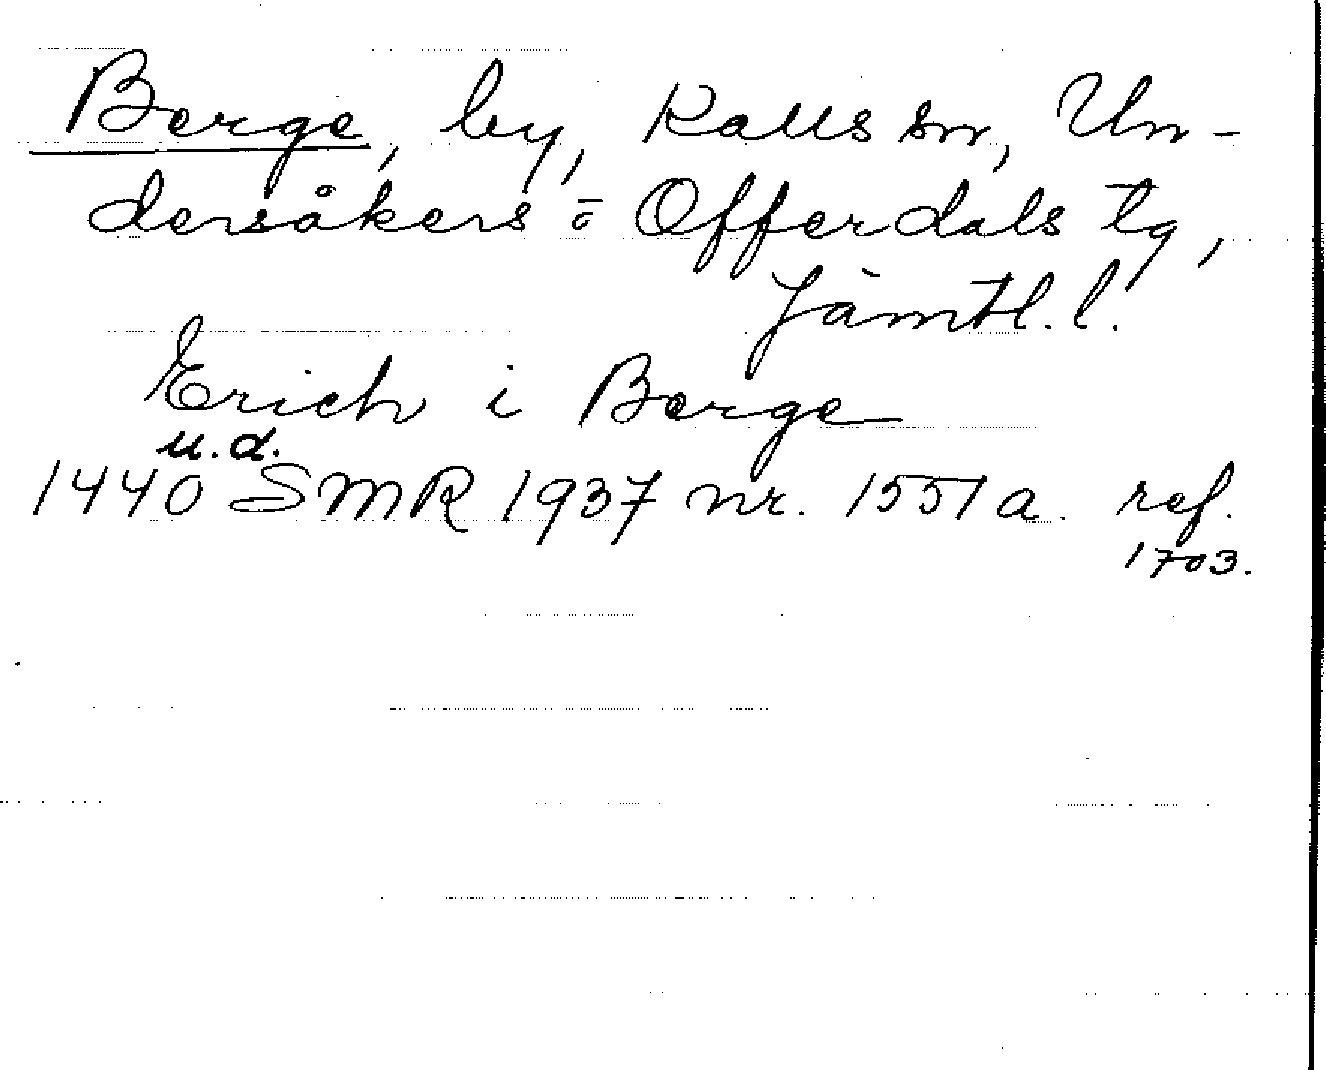 Berge, by, Kalls sn, Un-
dersåkers o Offerdals tg,
Jämtl. l.
Erich i Berge
u.d.
1440 SMR 1937 nr. 1551 a. ref.
1703.